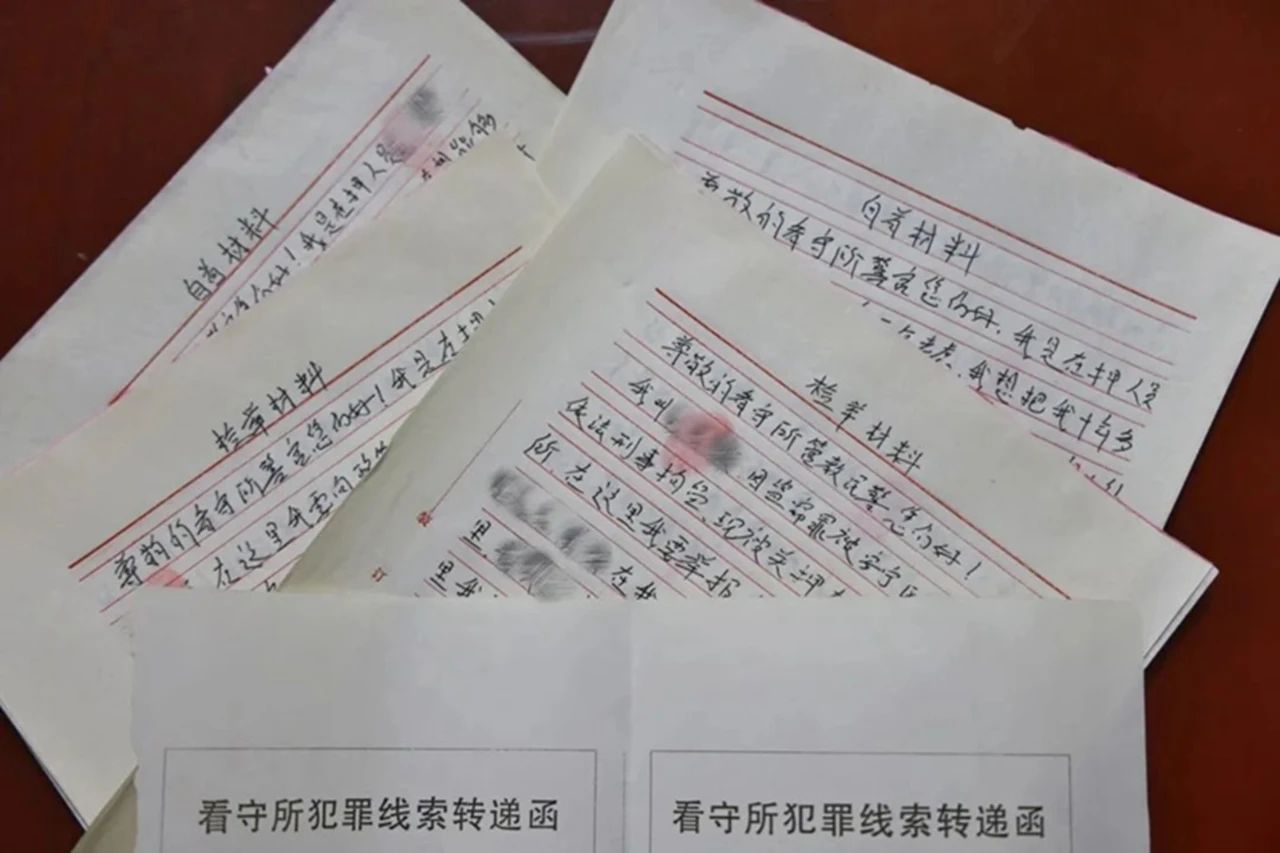 自首材料
好！我是在押人员
自首材料
尊敬的看守所警官您们好，我是在押人员
我想把我十多
检举材料
尊敬的看守所警官您们好！我是在押
在这里我要向政
检举材料
尊敬的看守所管教民警您们好！
我叫
因盗窃罪被安宁
依法刑事拘留，现被关押
所，在这里我要举报
里，
在我
里我
装
订
看守所犯罪线索转递函
看守所犯罪线索转递函